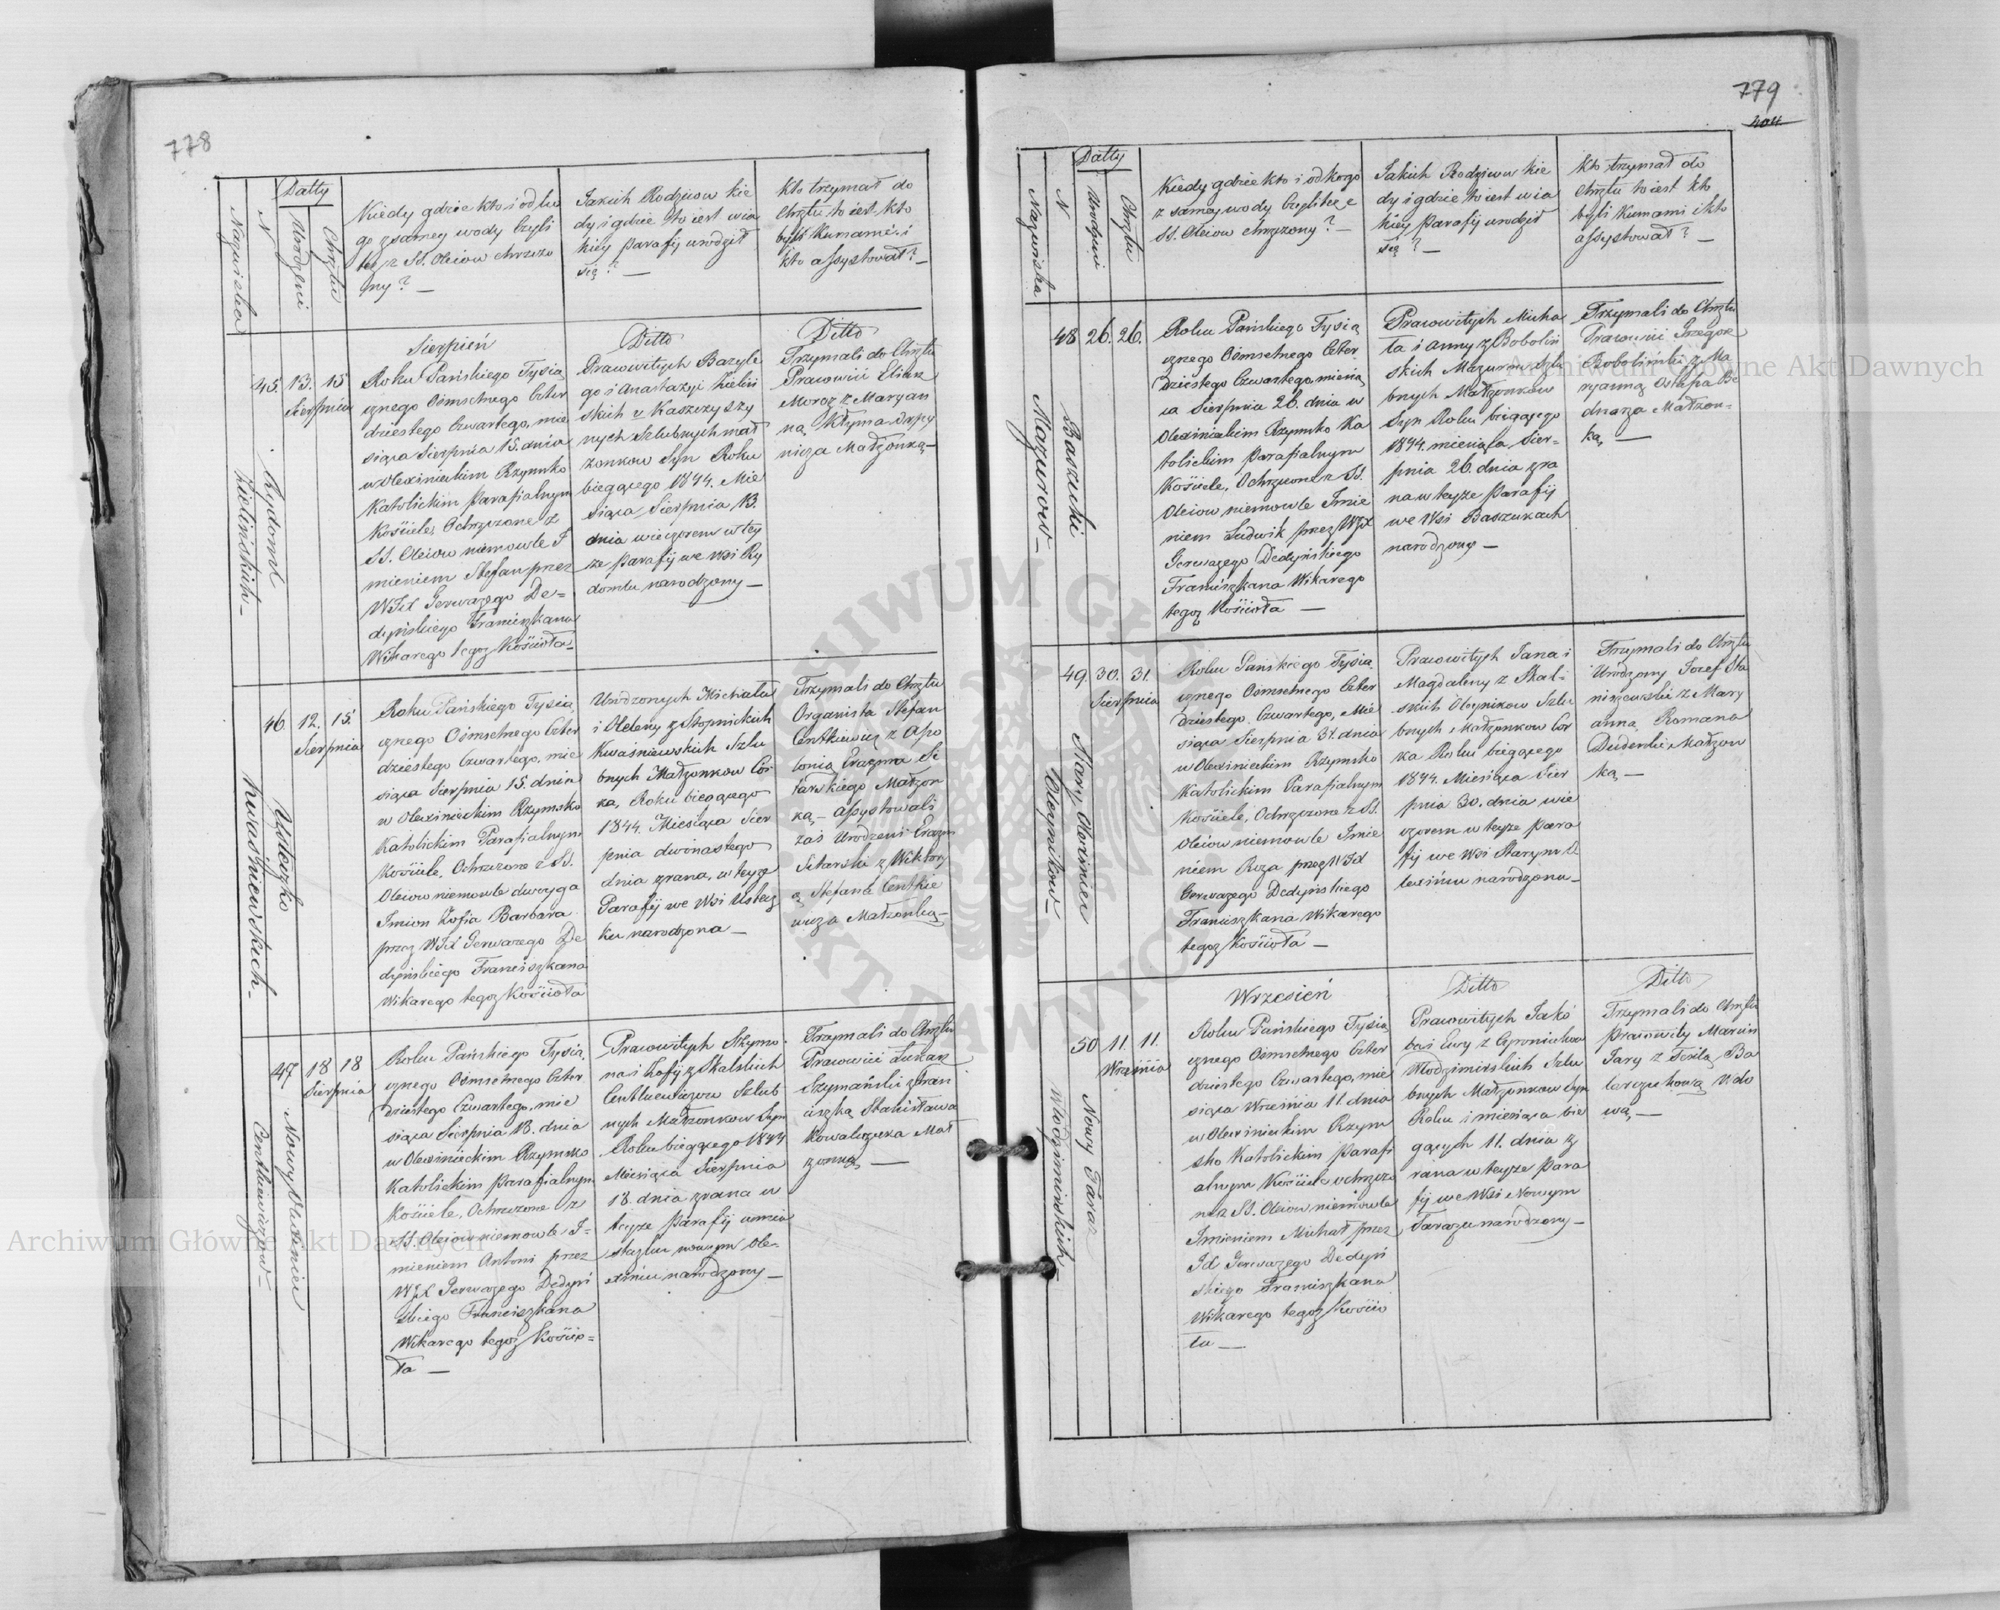 778
Datty
Nazwiska
N
Urodzeni
Chrztu
Kiedy gdzie kto i od ko
go z samey wody Czyli
też z SS. Oleiow chrzczo
ny? —
Jakich Rodziców kie
dy i gdzie to iest w ia
kiéy Parafij urodził
się? —
Kto trzymał do
Chrztu to iest kto
byli Kumami i
kto assystował? —
45.
13. 15
Sierpnia
Rydoml
Zielińskich —
Sierpień
Roku Pańskiego Tysią
cznego Ośmsetnego Czter
dziestego Czwartego, mie
siąca Sierpnia 15. dnia
w Olexinieckim Rzymsko
Katolickim Parafialnym
Kościele, Ochrzczone z
SS. Oleiow niemowle I
mieniem Stefan przez
WJX Gerwazego De=
dyńskiego Franciszkana
Wikarego tegoż Kościoła —
Ditto
Pracowitych Bazyle
go i Anastazyi Zieliń
skich z Kaszczyszy
nych Szlubnych mał
żonkow Syn Roku
biegącego 1844. Mie
siąca Sierpnia 13.
dnia wieczorem w tey
że Parafij we Wsi Ry
domlu narodzony —
Ditto
Trzymali do Chrztu
Pracowici Eliasz
Moroz z Maryan
ną Kłyma
nicza Małżonką —
46
12. 15
Sierpnia
Usteczko
Kwaśniewskich —
Roku Pańskiego Tysią
cznego Ośmsetnego Czter
dziestego Czwartego, mie
siąca Sierpnia 15. dnia
w Olexinieckim Rzymsko
Katolickim Parafialnym
Kościele, Ochrzczone z SS.
Oleiow niemowle dwoyga
Imion Zofia Barbara
przez WJX Gerwazego De
dyńskiego Franciszkana
Wikarego tegoż Kościoła
Urodzonych Michała
i Heleny z Stopnickich
Kwaśniewskich Szlu
bnych Małżonkow Cór
ka, Roku biegącego
1844. Miesiąca Sier
pnia dwónastego
dnia zrana, w teyże
Parafij we Wsi Uste
ku narodzona —
Trzymali do Chrztu
Organista Stefan
Centkiewicz z Apo
lonią Erazma Si
tarskiego Małżon
ką — Assystowali
zaś Urodzeni Erazm
Sitarski z Wiktory
ą Stefana Centkie
wicza Małżonką —
47
18 18
Sierpnia
Nowy Olexiniec
Centkiewiczow —
Roku Pańskiego Tysią
cznego Ośmsetnego Czter
dziestego Czwartego, mie
siąca Sierpnia 18. dnia
w Olexinieckim Rzymsko
Katolickim Parafialnym
Kościele, Ochrzczone z
SS. Oleiow niemowle I=
mieniem Antoni przez
WJX Gerwazego Dedyń
skiego Franciszkana
Wikarego tegoż Kościo=
ła —
Pracowitych Szymo
na i Zofij z Skalskich
Centkiewiczow Szlub
nych Małżonkow Syn
Roku biegącego 1844
Miesiąca Sierpnia
18. dnia zrana w
teyże Parafij w mia
steczku nowym Ole=
xińcu narodzony —
Trzymali do Chrztu
Pracowici Łukasz
Szymański z Fran
ciszką Stanisława
Kowalczuka Mał
żonką —
779
Datty
Nazwiska
N
Urodzeni
Chrztu
Kiedy gdzie kto i od kogo
z samey wody Czyli też z
SS. Oleiow chrzczony? —
Jakich Rodzicow kie
dy i gdzie to iest w ia
kiéy Parafij urodził
się? —
Kto trzymał do
Chrztu to iest kto
byli Kumami i kto
assystował? —
48
26. 26.
Baszuki
Mazurow —
Roku Pańskiego Tysią
cznego Ośmsetnego Czter
dziestego Czwartego, miesią
ca Sierpnia 26. dnia w
Olexinieckim Rzymsko Ka
tolickim Parafialnym
Kościele, Ochrzczone z SS.
Oleiow niemowle Imie
niem Ludwik przez WJX
Gerwazego Dedyńskiego
Franciszkana Wikarego
tegoż Kościoła —
Pracowitych Micha
ła i Anny z Bobolin
skich Mazurow Szlu
bnych Małżonkow
Syn Roku biegącego
1844. miesiąca Sier=
pnia 26. dnia zra
na w teyże Parafij
we Wsi Baszukach
narodzony —
Trzymali do Chrztu
Pracowici Grzegorz
Boboliński z Ma
ryanną Ostapa Be
dnarza Małżon=
ką —
49
30. 31.
Sierpnia
Stary Olexiniec
Oleynikow —
Roku Pańskiego Tysią
cznego Ośmsetnego Czter
dziestego Czwartego, Mie
siąca Sierpnia 31. dnia
w Olexinieckim Rzymsko
Katolickim Parafialnym
Kościele, Ochrzczone z SS.
Oleiow niemowle Imie
niem Roza przez WJX
Gerwazego Dedyńskiego
Franciszkana Wikarego
tegoż Kościoła —
Pracowitych Jana i
Magdaleny z Skal=
skich Oleynikow Szlu
bnych Małżonkow Cór
ka Roku biegącego
1844. Miesiąca Sier
pnia 30. dnia wie
czorem w teyże Para
fij we Wsi Starym O
lexińcu narodzona —
Trzymali do Chrztu
Urodzony Jozef Sta
niszewski z Mary
anną Romana
Dudenki Małżon
ką —
50
11. 11.
Września
Nowy Taraz
Włodzimirskich —
Wrzesień
Roku Pańskiego Tysią
cznego Ośmsetnego Czter
dziestego Czwartego, mie
siąca Września 11. dnia
w Olexinieckim Rzym
sko Katolickim Parafi
alnym Kościele ochrzczo
ne z SS. Oleiow niemowle
Imieniem Michał przez
JX Gerwazego Dedyń
skiego Franciszkana
Wikarego tegoż Kościo
ła —
Ditto
Pracowitych Jakó
ba i Ewy z
Włodzimirskich Szlu
bnych Małżonkow Syn
Roku i miesiąca bie
gących 11. dnia z
rana w teyże Para
fij we Wsi Nowym
Tarazu narodzony —
Ditto
Trzymali do Chrztu
Pracowity Marcin
Jary z Teklą Ba
larczukową Wdo
wą —
Archiwum Główne Akt Dawnych
Archiwum Główne Akt Dawnych
ARCHIWUM GŁÓWNE AKT DAWNYCH